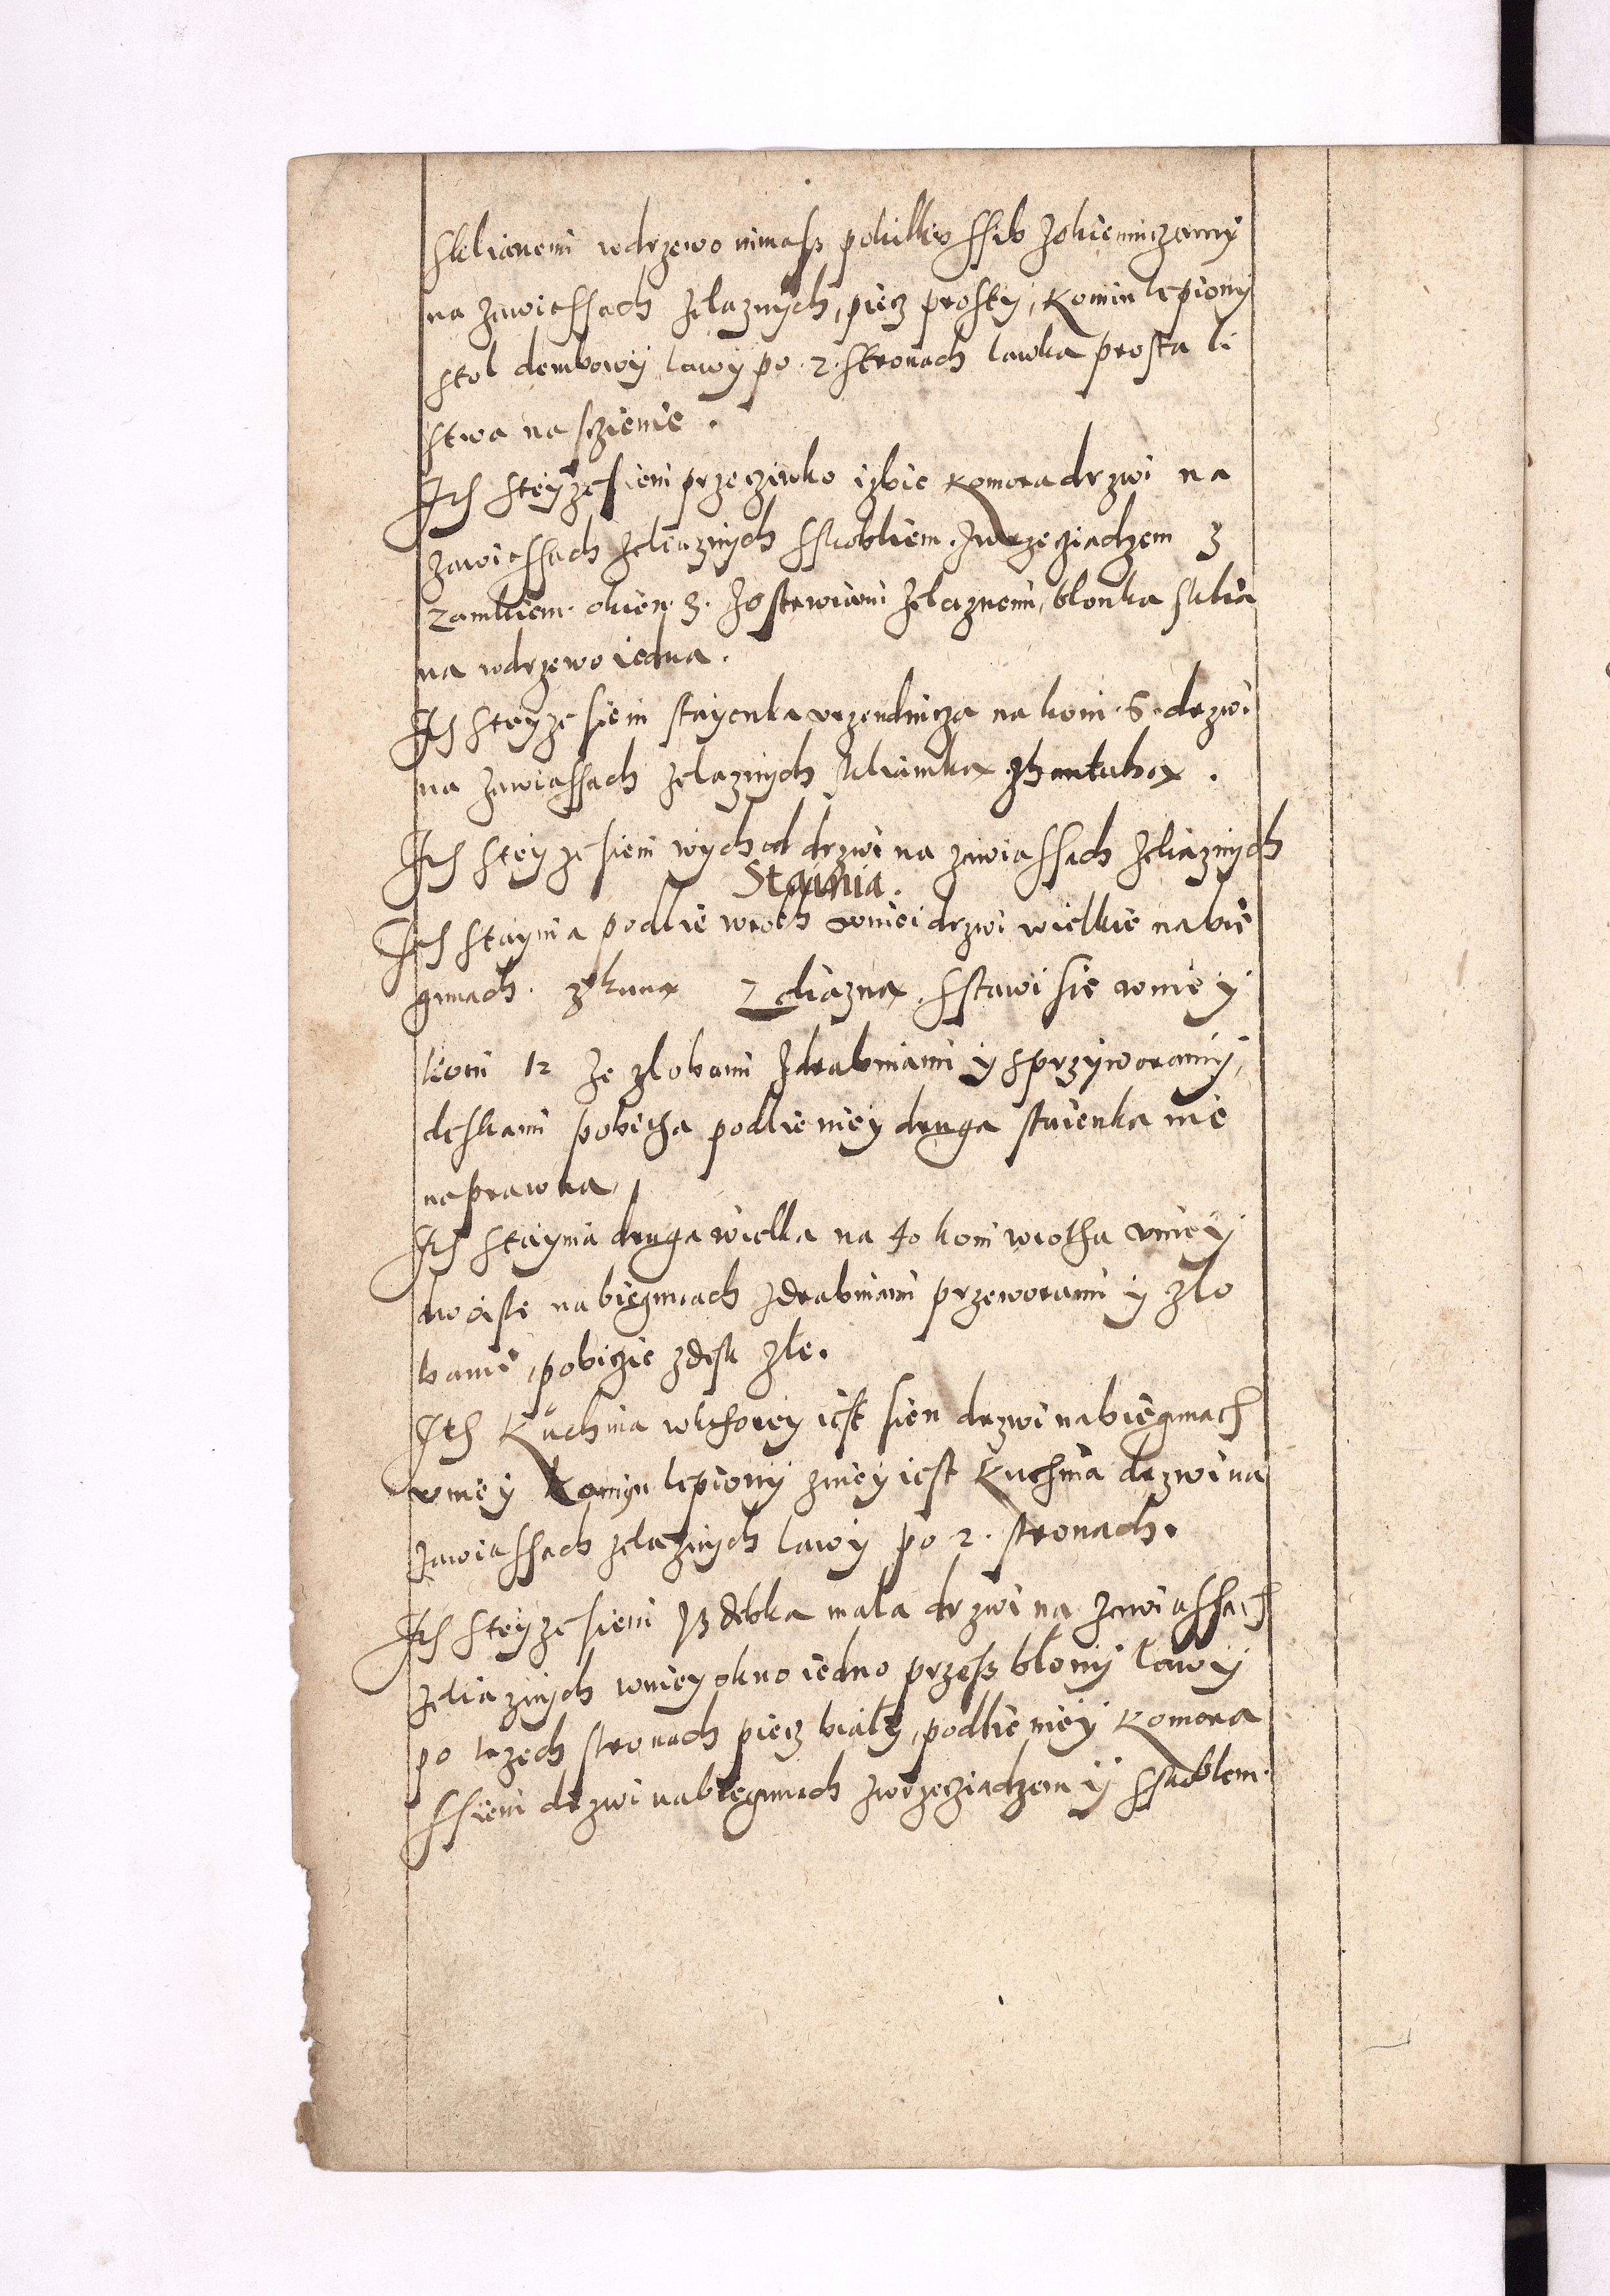 sklianemi wdrzewo nimasz pokilku ssib zokienniczamy
na zawiassach zelaznych, piecz prosty, komin lepiony
stol dembowy lawy po 2. stronach lawka prosta li
stwa na sczienie.
Ite steyze sieni przeczinko izbie komora drzwi na
zawiassach zeliaznych sskobliem. zwrzecziadzem z
zamkiem. okien 3. zostawiami zelaznemi, blonka sklia
na wdrzewo iedna.
Ite steyze sieni stayenka vrzendnicza na koni 6. drzwi
na zawiassach zelaznych skliamka zhantaba.
Ite steyze sieni wychod drzwi na zawiassach zeliaznych
Stainia.
Ite staynia podlie wroth wniei drzwi wielkie nabie
gunach. zkuna zeliazna. sstawi sie wniey
koni 12 ze zlobami zdrabniami y sprzyworamy,
deskami pobitha podlie niey druga staienka nie
naprawna
Ite staynia druga wielka na 40 koni wiotha vniey
dwoiste nabiegunach zdrabniami przeworami y zlo
bami, pobiczie zdesk zle.
Ite Kuchnia wkthorey iest sien drzwi nabiegunach
vniey komyn lepiony zniey iest Kuchnia drzwi na
zawiassach zelaznych lawy po 2. stronach.
Ite steyze sieni Jzdebka mala drzwi na zawiassach
zeliaznych wniey okno iedno przesz blony lawy
po trzech stronach piecz bialy, podlie niey komora
ssieni drzwi nabiegunach zwrzecziadzem y sskoblem.